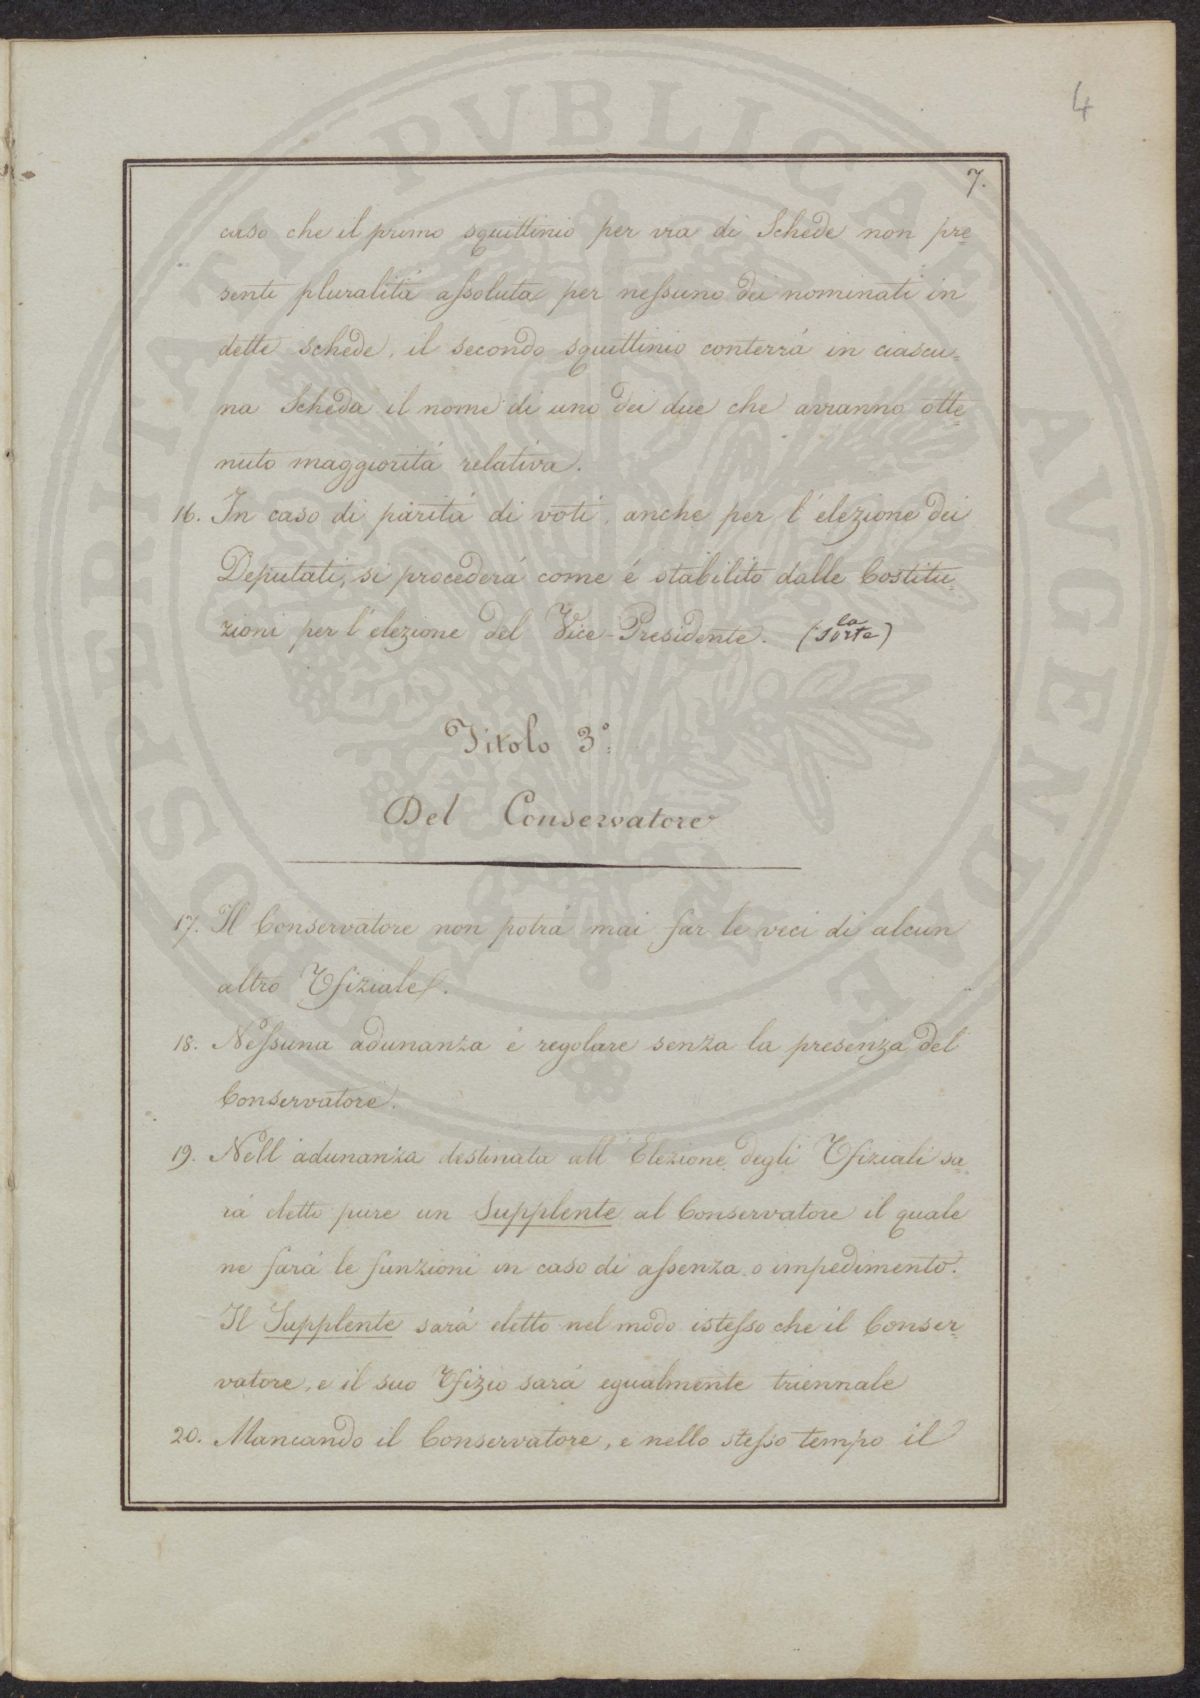 4
7.
caso che il primo squittinio per via di Schede non pre=
senti pluralitá assoluta per nessuno dei nominati in
dette schede, il secondo squittinio conterrá in ciascu=
na Scheda il nome di uno dei due che avranno otte=
nuto maggioritá relativa.
16. In caso di paritá di voti, anche per l'elezione dei
Deputati, si procederá come é stabilito dalle Costitu=
zioni per l'elezione del Vice-Presidente. (la Sorte)
Titolo 3°.
Del Conservatore
17. Il Conservatore non potrá mai far le veci di alcun
altro Ufiziale.
18. Nessuna adunanza é regolare senza la presenza del
Conservatore.
19. Nell'adunanza destinata all'Elezione degli Ufiziali sa=
rá eletto pure un Supplente al Conservatore il quale
ne fará le funzioni in caso di assenza o impedimento.
Il Supplente sará eletto nel modo istesso che il Conser=
vatore, e il suo Ufizio sará egualmente triennale
20. Mancando il Conservatore, e nello stesso tempo il
PROSPERITATI PVBLICAE AVGENDAE